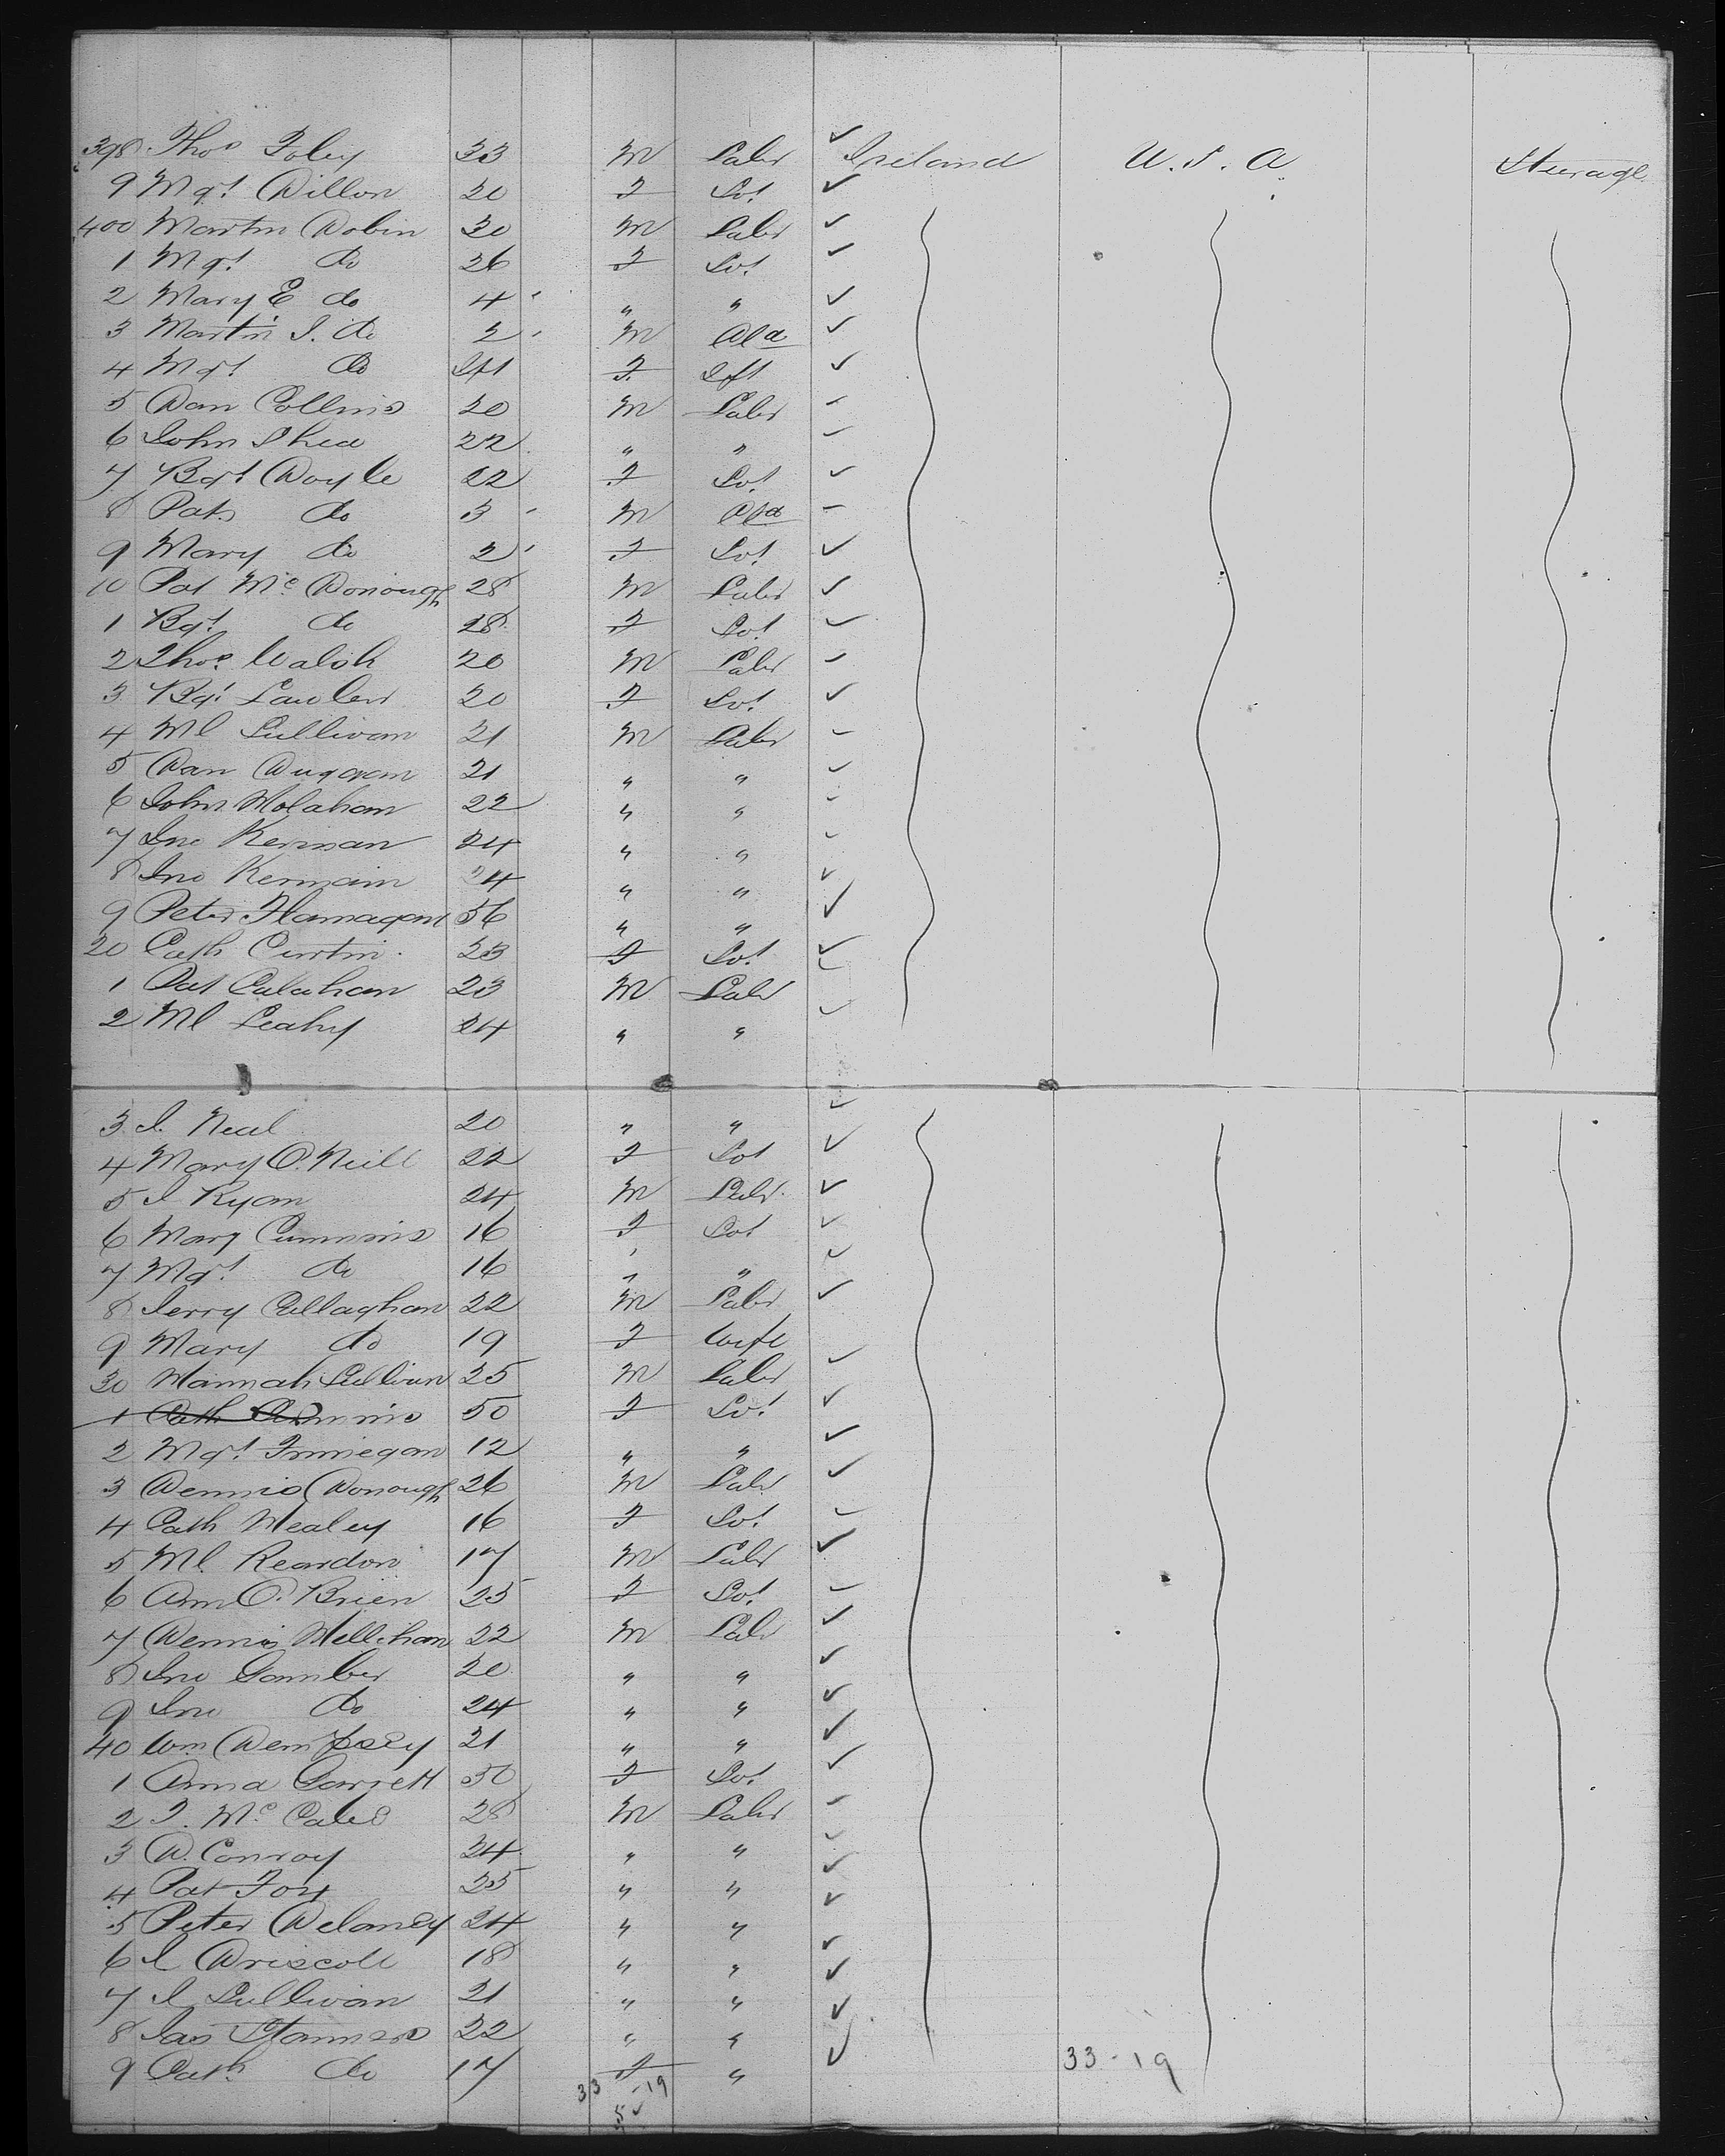 398 Thos Foley 33 M Labr Ireland U.S.A. Steerage
9 Mgt Dillon 20 F Sv!
400 Martin Dobin 30 M Labr
1 Mgt do 26 F Sv!
2 Mary E do 4 " "
3 Martin J. do 2 M
4 Mgt do Ift F. Ift
5 Dan Collins 20 M Labr
6 John Shea 22 " "
7 Bgt Doyle 22 F Sv!
8 Pat do 3 M
9 Mary do 2 F Sv!
10 Pat Mc Donough 28 M Labr
1 Bgt do 28 F Sv!
2 Thos Walsh 20 M Labr
3 Bgt Lawler 20 F Sv!
4 Ml Sullivan 21 M Labr
5 Dan Duggan 21 " "
6 John Holahan 22 " "
7 Jno Kernan 24 " "
8 Jno Kermain 24 " "
9 Peter Flannagan 56 " "
20 Cath Curtin 23 F Sv!
1 Pat Calahan 23 M Labr
2 Ml Leahy 24 " "
3 J. Neal 20 " "
4 Mary O. Neill 22 F Svt
5 J Ryan 24 M Labr
6 Mary Cummins 16 F Svt
7 Mgt do 16 " "
8 Jerry Callaghan 22 M Labr
9 Mary do 19 F Wife
30 Hannah Sullivan 25 M Labr
1 Cath Cummins 50 F Sv!
2 Mgt Finnegan 12 " "
3 Dennis Donough 26 M Labr
4 Cath Healey 16 F Sv!
5 Ml Reardon 17 M Labr
6 Ann O. Brien 25 F Sv!
7 Dennis Hellihan 22 M Labr
8 Jno Gamber 20 " "
9 Jno do 24 " "
40 Wm Dempsey 21 " "
1 Anna Garrett 50 F Sv!
2 J. Mc Cabe 28 M Labr
3 D. Conroy 24 " "
4 Pat Foy 25 " "
5 Peter Delaney 24 " "
6 J Driscoll 18 " "
7 J Sullivan 21 " "
8 Jas 22 " "
9 Cath do 17 F "
33 - 19 33 - 19
5